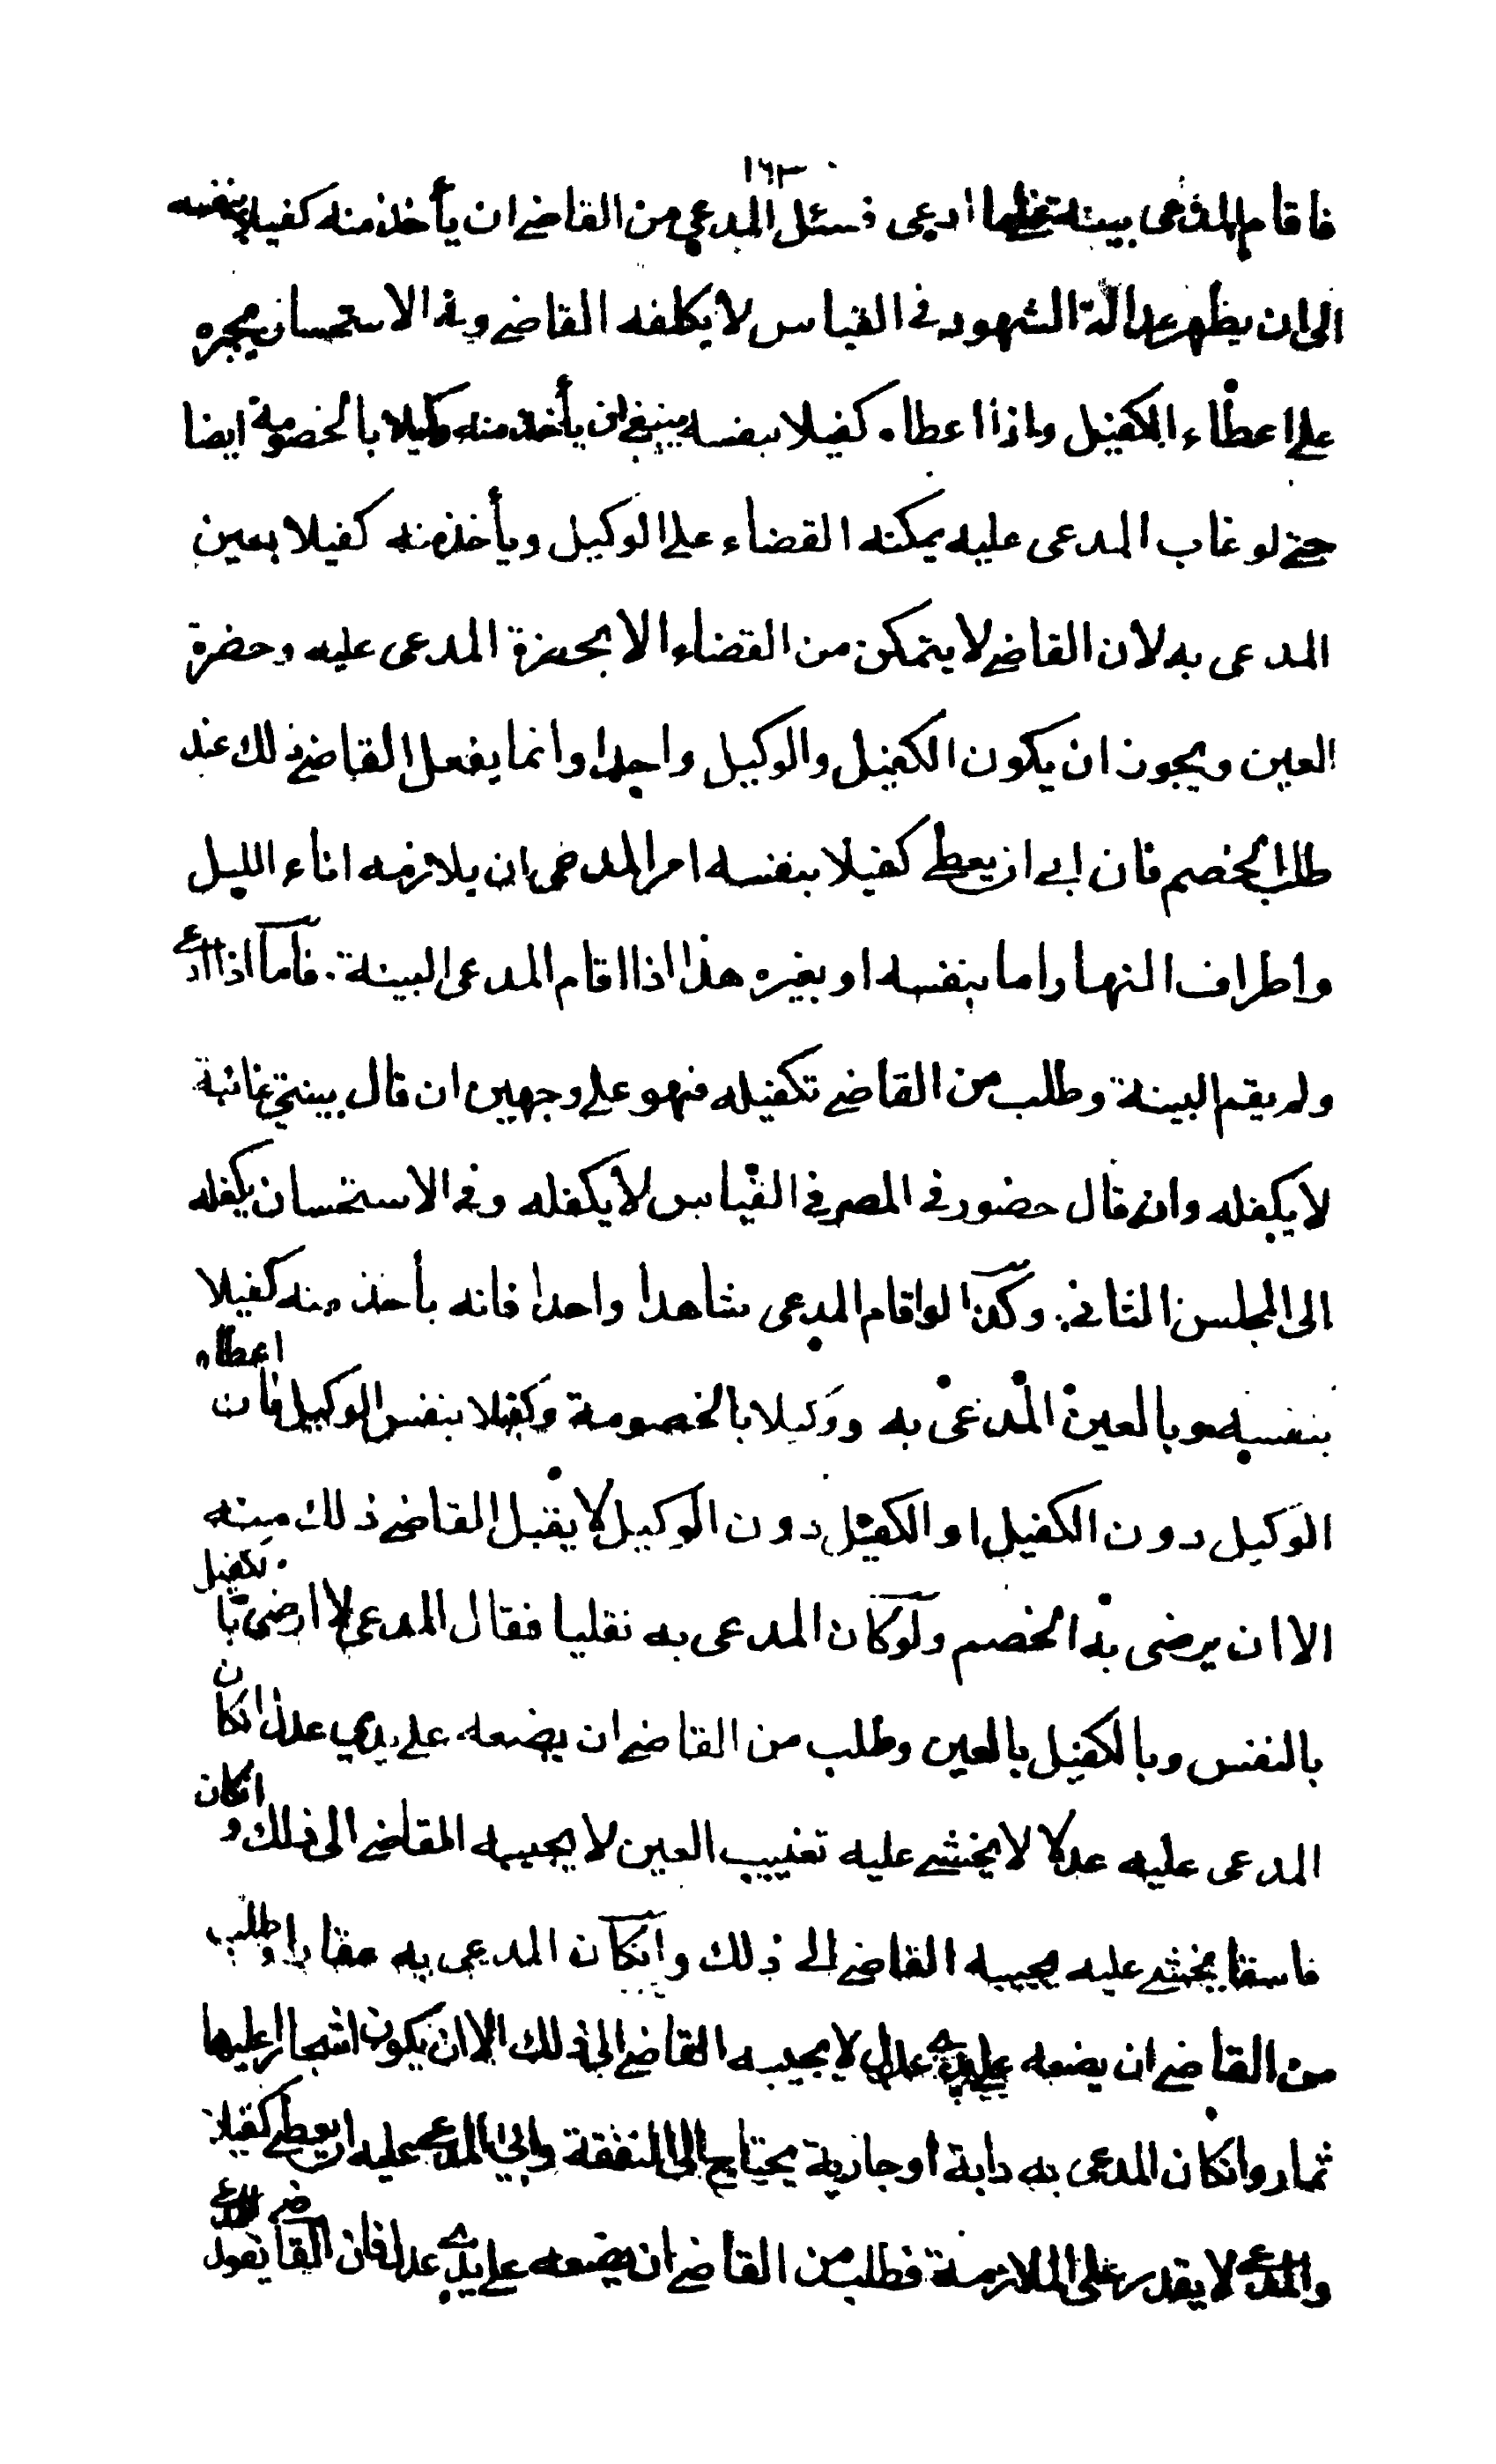 ١٦٣
فاقام المدعى بينة على ما ادعى فسئل المدعي من القاضي ان يأخذ منه كفيلا بنفسه
الى ان يظهر عدالة الشهود في القياس لا يكلفه القاضي وفي الاستحسان يجبره
على اعطاء الكفيل واذا اعطاه كفيلا بنفسه ينبغي ان يأخذ منه وكيلا بالخصومة ايضا
حتى لو غاب المدعى عليه يمكنه القضاء على الوكيل ويأخذ منه كفيلا بعين
المدعى به لان القاضي لا يتمكن من القضاء الا بحضرة المدعى عليه وحضرة
العين ويجوز ان يكون الكفيل والوكيل واحدا وانما يفعل القاضي ذلك عند
طلب الخصم فان ابى ان يعطي كفيلا بنفسه امر المدعى ان يلازمه اناء الليل
واطراف النهار اما بنفسه او بغيره هذا اذا اقام المدعى البينة . فاما اذا ادعى
ولم يقم البينة وطلب من القاضي تكفيله فهو على وجهين ان قال بينتي غائبة
لا يكفله وان قال حضور في المصر في القياس لا يكفله وفي الاستحسان يكفله
الى المجلس الثاني . وكذا لو اقام المدعى شاهدا واحدا فانه يأخذ منه كفيلا
بنفسه وبالعين المدعى به ووكيلا بالخصومة وكفيلا بنفس الوكيل فان اعطاه
الوكيل دون الكفيل او الكفيل دون الوكيل لا يقبل القاضي ذلك منه
الا ان يرضى به الخصم ولو كان المدعى به نقليا فقال المدعى لا ارضى بالكفيل
بالنفس وبالكفيل بالعين وطلب من القاضي ان يضعه على يدي عدل ان كان
المدعى عليه عدلا لا يخشى عليه تغييب العين لا يجيبه القاضي الى ذلك وانكان
فاسقا يخشى عليه يجيبه القاضي الى ذلك وانكان المدعى به عقارا وطلب
من القاضي ان يضعه على يدي عدل لا يجيبه القاضي الى ذلك الا ان يكون اشجارا عليها
ثمار وانكان المدعى به دابة او جارية يحتاج الى النفقة وابى المدعى عليه ان يعطي كفيلا
والمدعى لا يقدر على الملازمة فطلب من القاضي ان يضعه على يدي عدل فان القاضي يقول